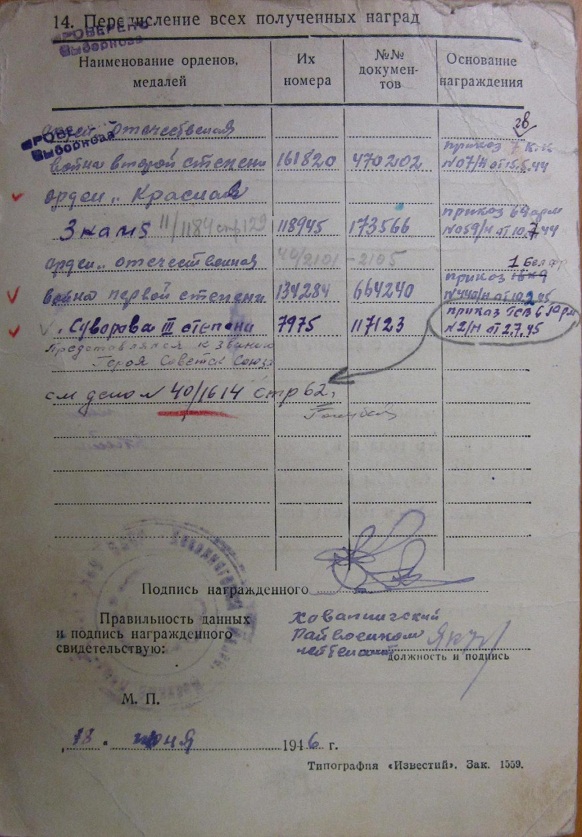 14. Перечисление всех полученных наград
ПРОВЕРЕНО
Выборнова
Наименование орденов, медалей
Их номера
№№ документов
Основание награждения
28
ПРОВЕРЕНО
Выборнова
отечественая
война второй степени 161820 470202 приказ 7 к.к №07/н от 15.5.44
орден „ Красная
Знамя 11/1184 стр 129 118945 173566 приказ 69 арм №059/н от 10.7.44
орден „ отечественная 40/2101 - 2105
война первой степени 134284 664240 приказ 1 Бел ф. №440/н от 10.2.45
„ Суворова III степени 7975 117123 приказ №2/н от 2.7.45
Представлялся к званию
Героя Советск Союза
см дело № 40/1614 стр 62.
Подпись награжденного
Правильность данных
и подпись награжденного
свидетельствую:
Райвоенком
должность и подпись
М. П.
„ 18 " июня 1946 г.
Типография «Известий». Зак. 1559.